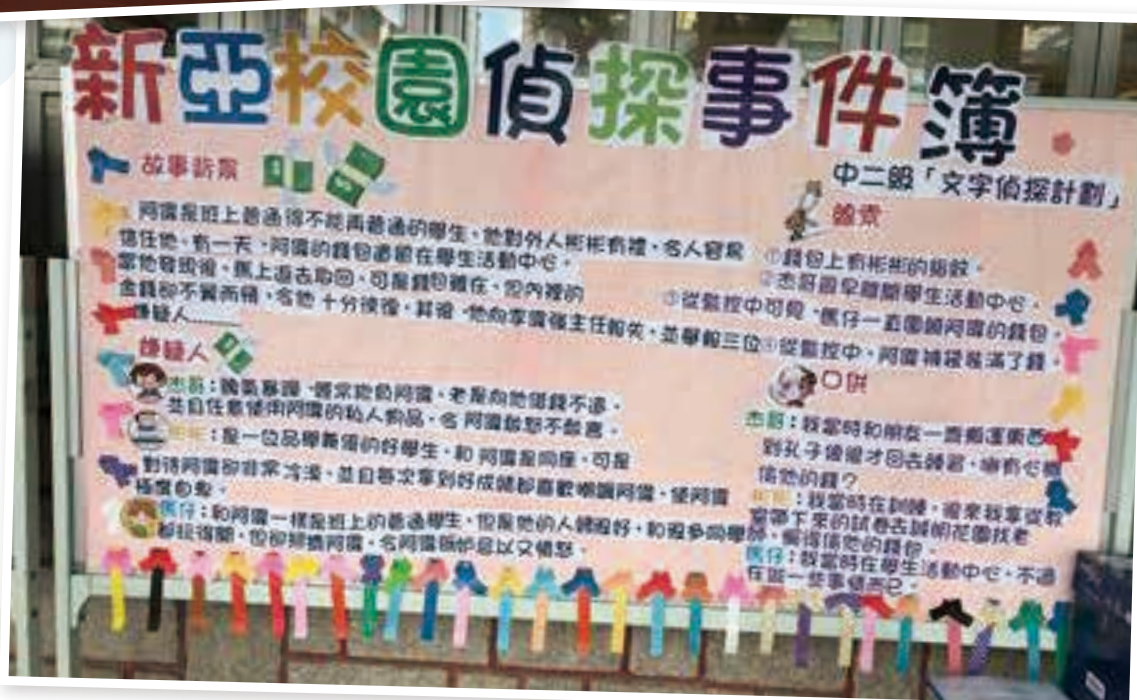 新亞校園偵探事件簿
中二級「文字偵探計劃」
故事背景
阿偉是班上普通得不能再普通的學生,他對外人彬彬有禮,令人容易
信任他。有一天,阿偉的錢包遺留在學生活動中心。
當他發現後,馬上返去取回,可是錢包雖在,但內裡的
金錢卻不翼而飛,令他十分後悔。其後,他向李主任報失,並舉報三位
嫌疑人……
嫌疑人
杰哥:脾氣暴躁,經常欺負阿偉,老是向他借錢不還,
並且任意使用阿偉的私人物品,令阿偉敢怒不敢言。
彬彬:是一位品學兼優的好學生,和阿偉是同座,可是
對待阿偉卻非常冷漠,並且每次拿到好成績都喜歡嘲諷阿偉,使阿偉
極度自卑。
馬仔:和阿偉一樣是班上的普通學生,但是他的人緣很好,和很多同學
都玩得開,但卻排擠阿偉,令阿偉既妒忌以又憤怒。
線索
①錢包上有彬彬的指紋。
②杰哥最早離開學生活動中心。
③從監控中可見,馬仔一直圍繞阿偉的錢包。
④從監控中,阿偉褲袋裝滿了錢。
口供
杰哥:我當時和朋友一直搬運東西
到孔子像後才回去練習,哪有心機
偷他的錢?
彬彬:我當時在訓練,後來我拿從教
室帶下來的試卷去誠明花園找老
師,懶得偷他的錢包。
馬仔:我當時在學生活動中心,不過
在做一些事情而已。